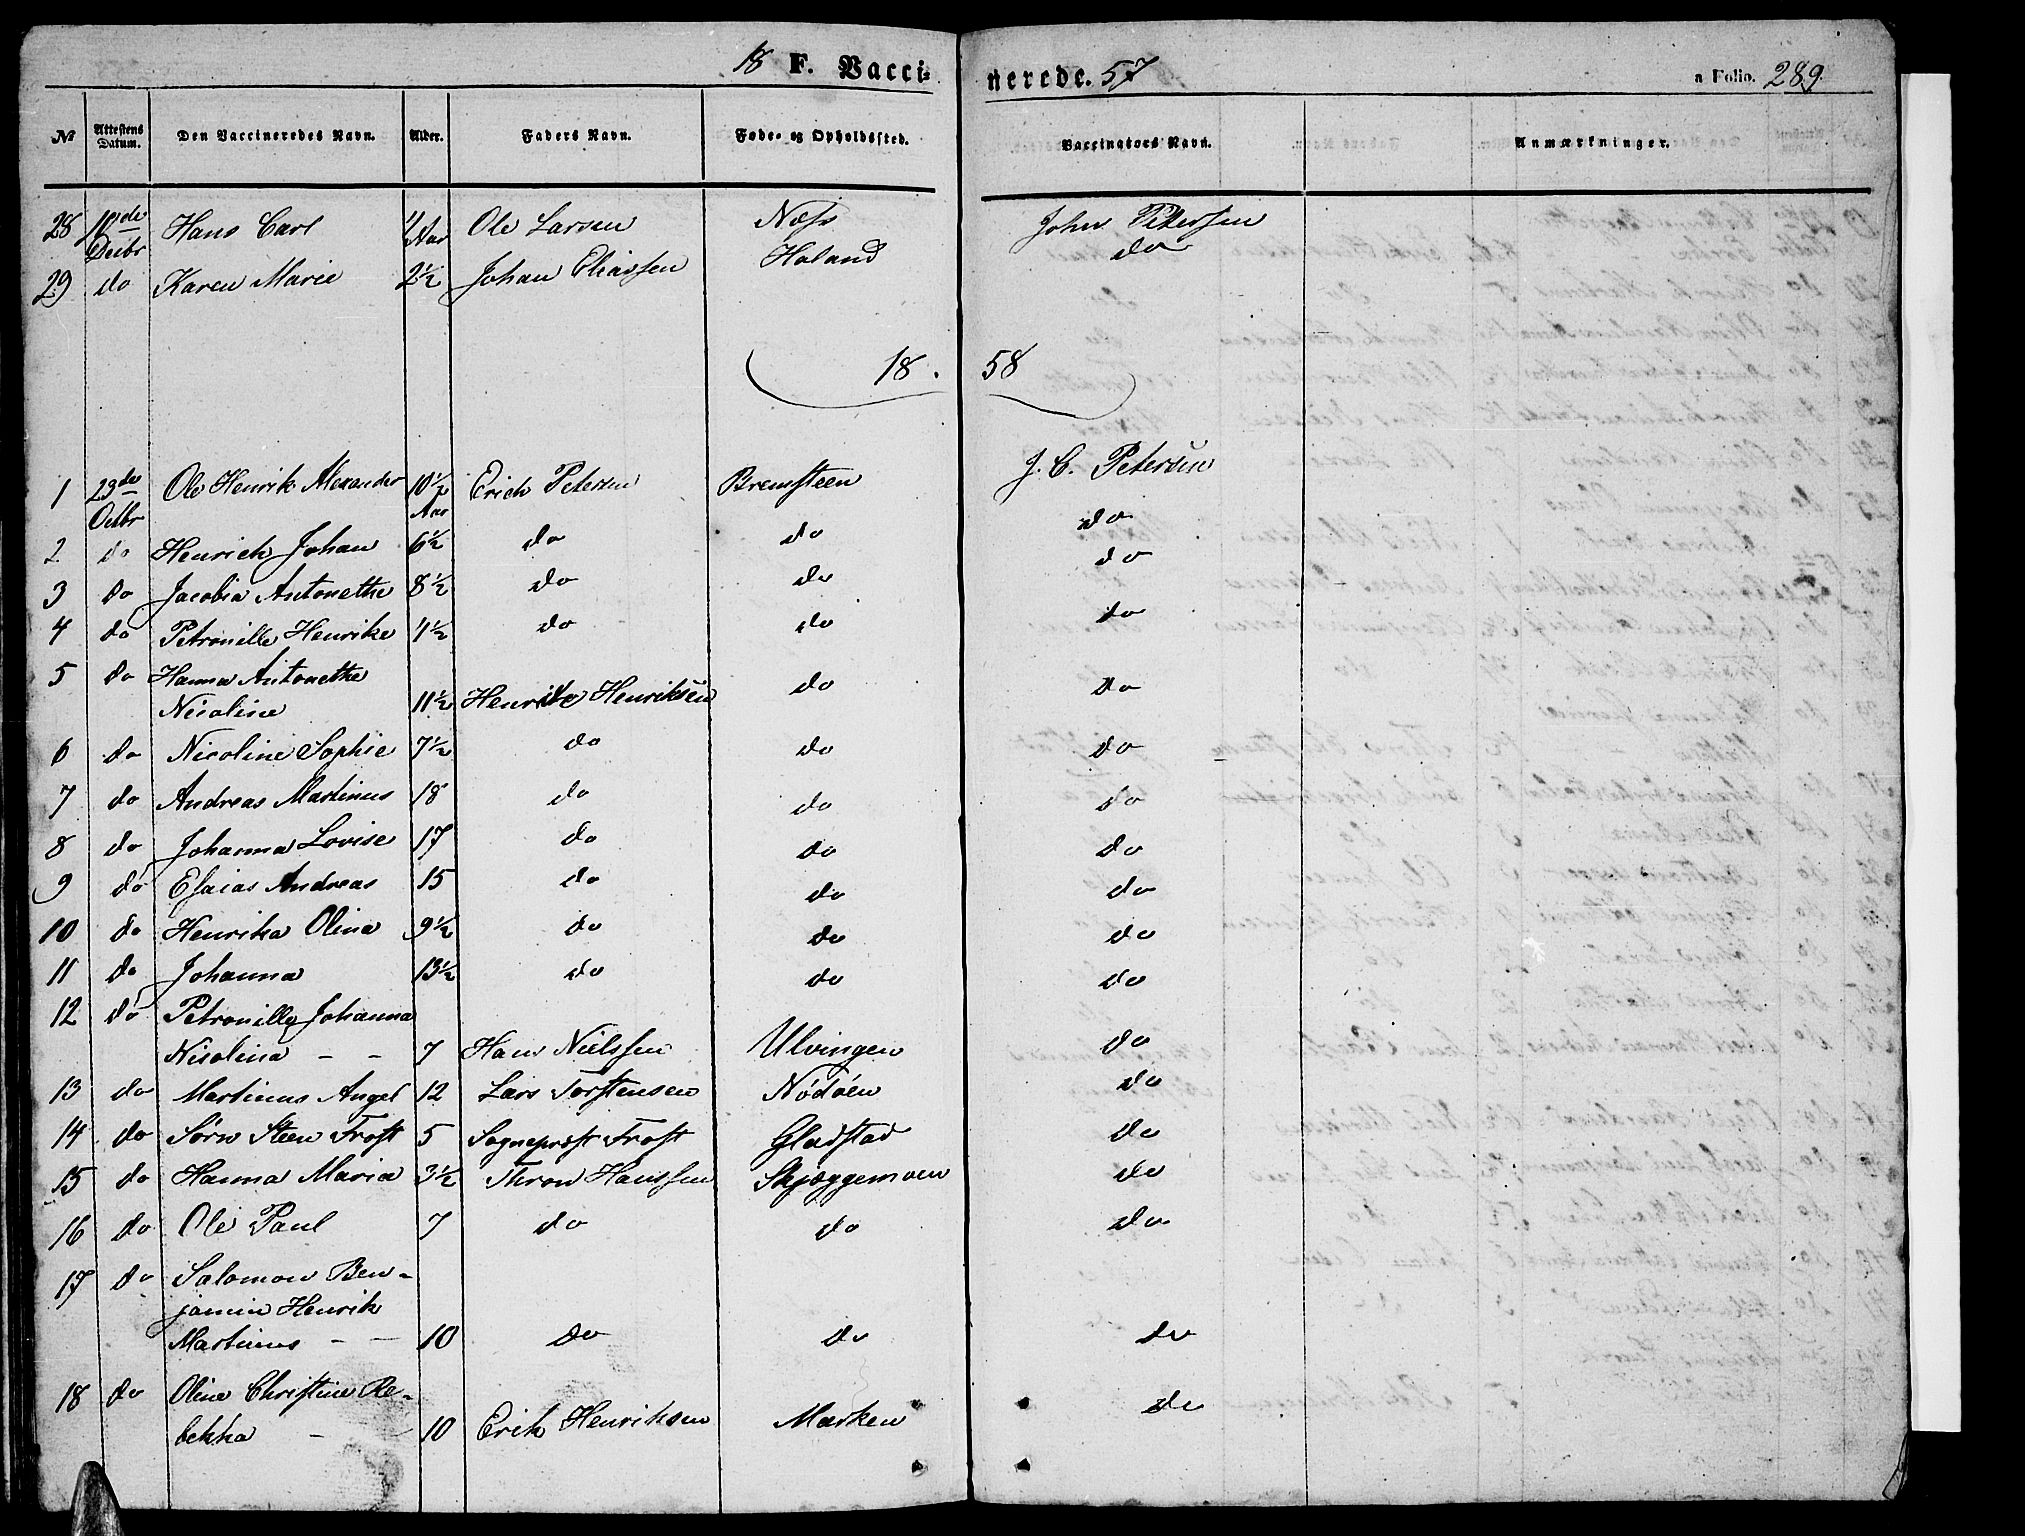 18 F. Vacci- nerede. 57 a Folio. 289.
No Attestens Datum. Den Vaccineredes Navn. Alder. Faders Navn. Føde- og Opholdssted. Vaccinators Navn. Anmærkninger.
28 10de Decbr Hans Carl ½ Aar Ole Larsen Næss John Petersen
29 do Karen Marie 2½ Johan Eliassen Holand do
18. 58
1 23de Octbr Ole Henrik Alexander 10½ Aar Erich Petersen Bremsteen J. C. Petersen
2 do Henrich Johan 6½ do do do
3 do Jacobia Antonethe 8½ do do do
4 do Petronille Henrike 1½ do do do
5 do Hanna Antonethe
Nicoline 11½ Henrik Henriksen do do
6 do Nicoline Sophie 7½ do do do
7 do Andreas Martinus 18 do do do
8 do Johanna Lovise 17 do do do
9 do Esaias Andreas 15 do do do
10 do Henrika Olina 9½ do do do
11 do Johanna 13½ do do do
12 do Petronille Johanna
Nicolina - - 7 Hans Nielssen Ulvingen do
13 do Martinus Angel 12 Lars Torstensen Nødøen do
14 do Sørn Steen Frost 5 Sogneprest Frost Gladstad do
15 do Hanna Maria 3½ Thron Hanssen Skjæggemoen do
16 do Ole Paul 7 do do do
17 do Salomon Ben-
jamin Henrik
Martinus - - 10 do do do
18 do Oline Christine Re-
bekka - - 10 Erik Henriksen Marken do